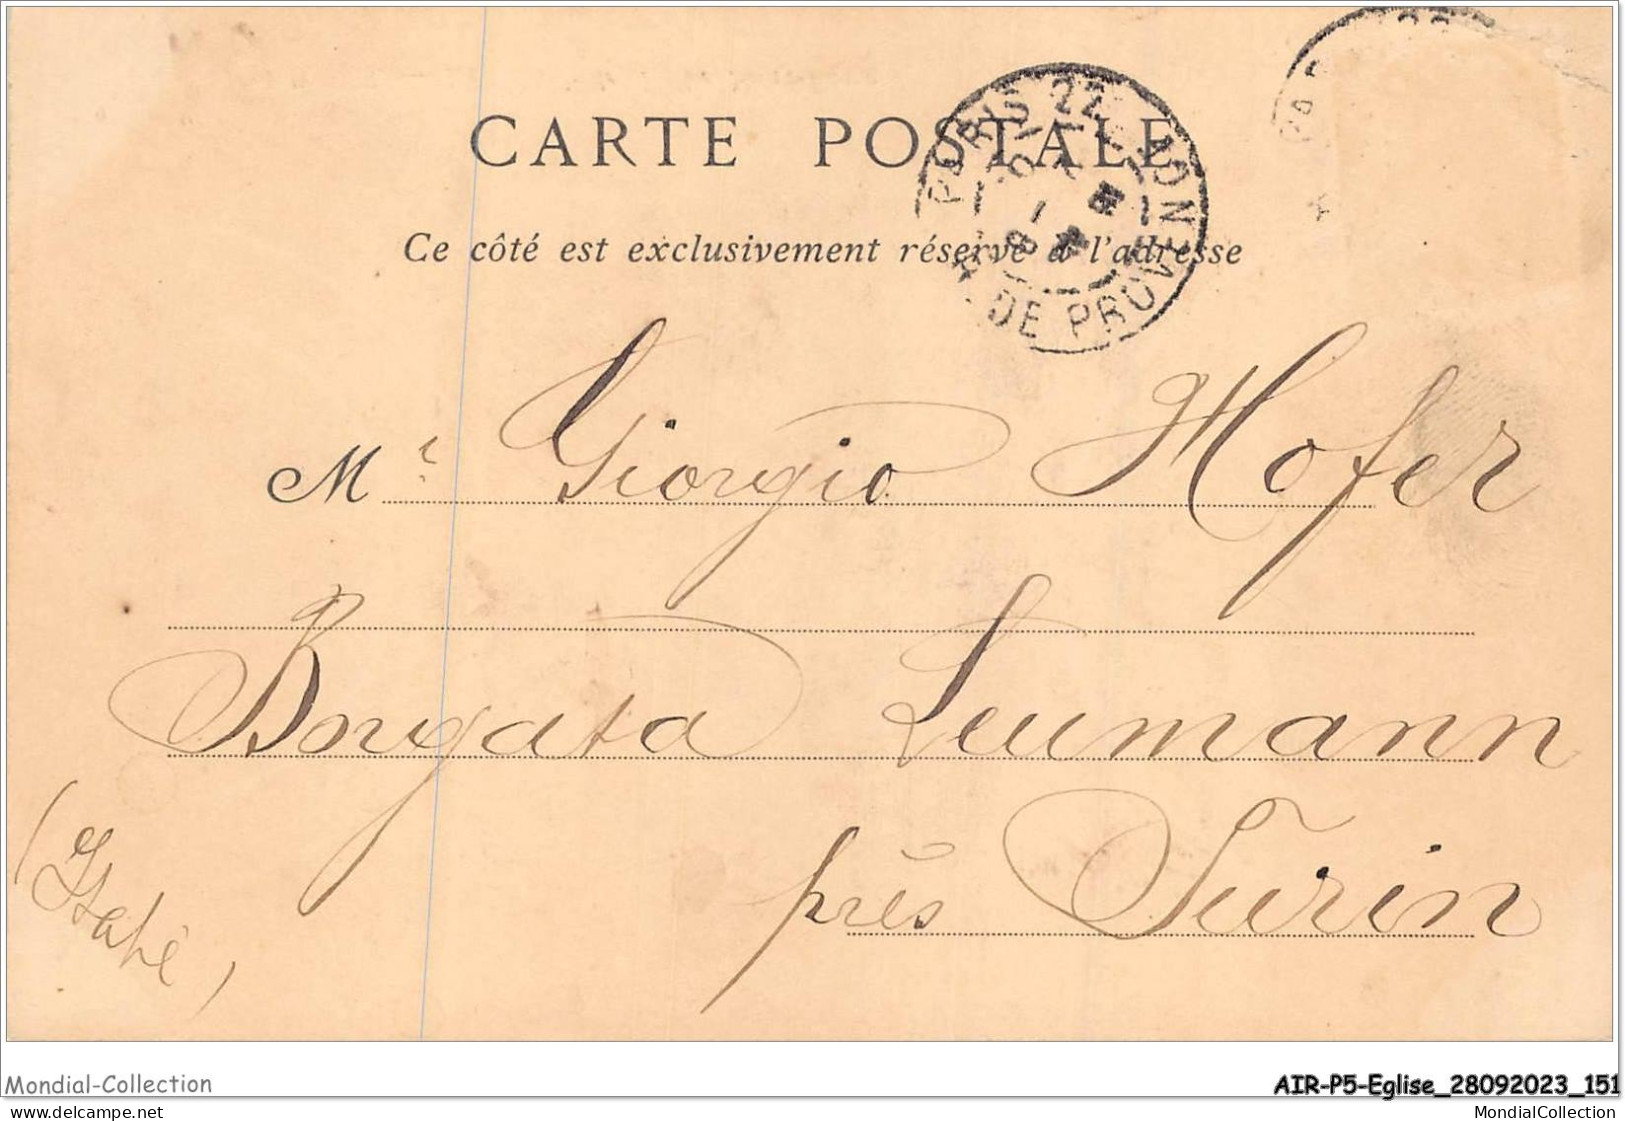 CARTE POSTALE
PARIS 22
DE PROVENCE
Ce côté est exclusivement réservé à l'adresse
Mr Giorgio Hofer
Borgata Leumann
près Turin
(Italie)
Mondial-Collection
AIR-P5-Eglise_28092023_151
www.delcampe.net
MondialCollection